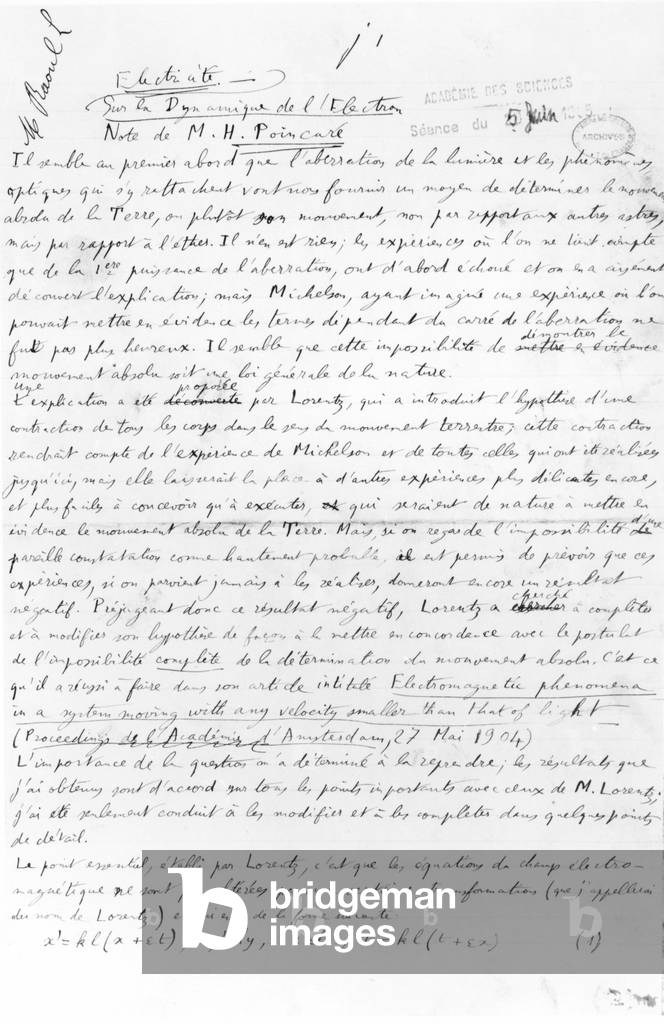 j 1
M Raoul L
Electricité. —
ACADÉMIE DES SCIENCES
Séance du 5 Juin
ARCHIVES
Sur la Dynamique de l'Electron
Note de M. H. Poincaré
Il semble au premier abord que l'aberration de la lumière et les phénomènes
optiques qui s'y rattachent vont nous fournir un moyen de déterminer le mouvement
absolu de la Terre, ou plutôt son mouvement, non par rapport aux autres astres,
mais par rapport à l'éther. Il n'en est rien; les expériences où l'on ne tient compte
que de la 1ere puissance de l'aberration, ont d'abord échoué et on en a aisément
découvert l'explication; mais Michelson, ayant imaginé une expérience où l'on
pouvait mettre en évidence les termes dépendant du carré de l'aberration ne
fut pas plus heureux. Il semble que cette impossibilité de mettre en évidence démontrer le
mouvement absolu soit une loi générale de la nature.
Une explication a été découverte proposée par Lorentz, qui a introduit l'hypothèse d'une
contraction de tous les corps dans le sens du mouvement terrestre; cette contraction
rendrait compte de l'expérience de Michelson et de toutes celles qui ont été réalisées
jusqu'ici, mais elle laisserait la place à d'autres expériences plus délicates encore,
et plus faciles à concevoir qu'à exécuter, qui seraient de nature à mettre en
évidence le mouvement absolu de la Terre. Mais, si on regarde l'impossibilité d'une
pareille constatation comme hautement probable, il est permis de prévoir que ces
expériences, si on parvient jamais à les réaliser, donneront encore un résultat
négatif. Préjugeant donc ce résultat négatif, Lorentz a chercher cherché à compléter
et à modifier son hypothèse de façon à la mettre en concordance avec le postulat
de l'impossibilité complète de la détermination du mouvement absolu. C'est ce
qu'il a réussi à faire dans son article intitulé Electromagnetic phenomena
in a system moving with any velocity smaller than that of light
(Proceedings de l'Académie d'Amsterdam, 27 Mai 1904)
L'importance de la question m'a déterminé à la reprendre; les résultats que
j'ai obtenus sont d'accord sur tous les points importants avec ceux de M. Lorentz;
j'ai été seulement conduit à les modifier et à les compléter dans quelques points
de détail.
Le point essentiel, établi par Lorentz, c'est que les équations du champ électro-
magnétique ne sont pas altérées transformations (que j'appellerai
du nom de Lorentz) et qui est de la forme suivante:
x' = kl(x + εt), kl(t + εx) (1)
b bridgeman
images